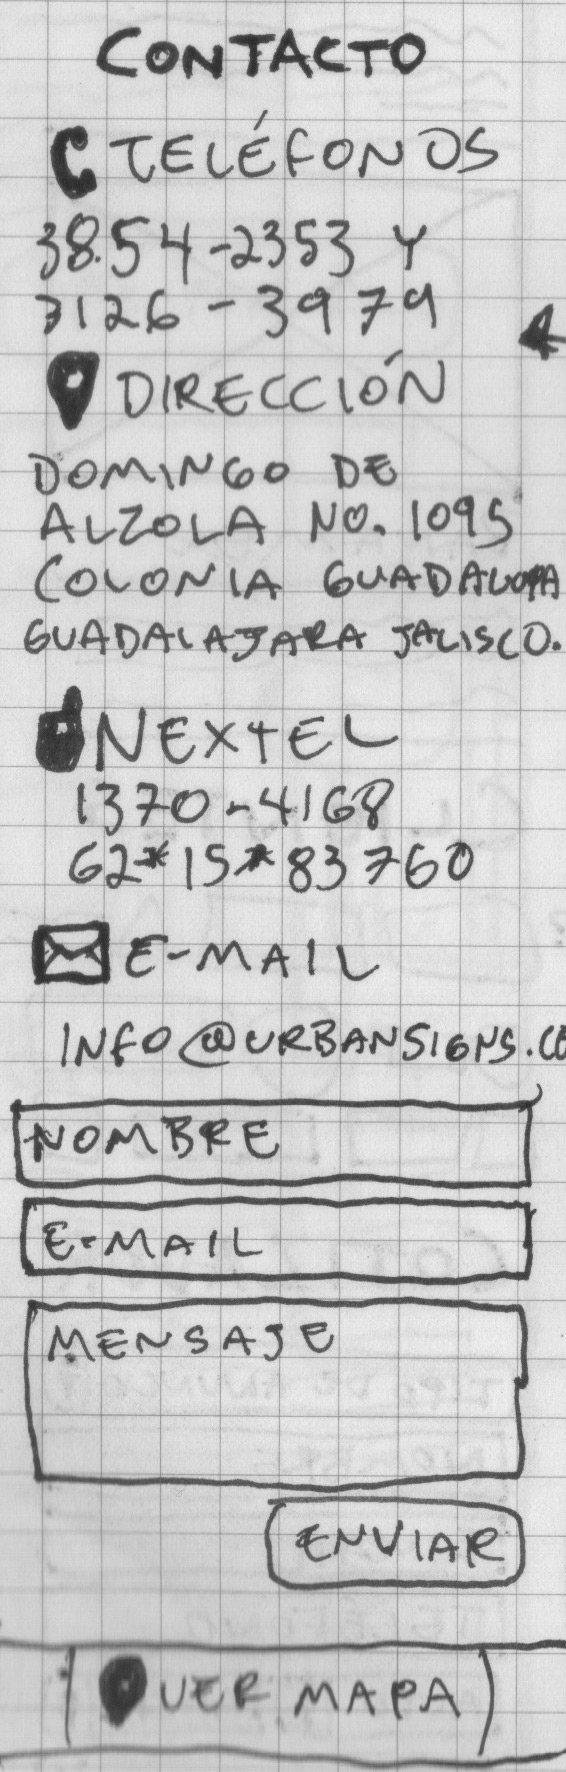 CONTACTO
TELÉFONOS
38.54-2353 Y
3126-3979
DIRECCIÓN
DOMINGO DE
ALZOLA NO. 1095
COLONIA GUADALUPA
GUADALAJARA JALISCO.
NEXTEL
1370-4168
62*15*83760
E-MAIL
INFO@URBANSIGNS.CO
NOMBRE
E-MAIL
MENSAJE
ENVIAR
VER MAPA